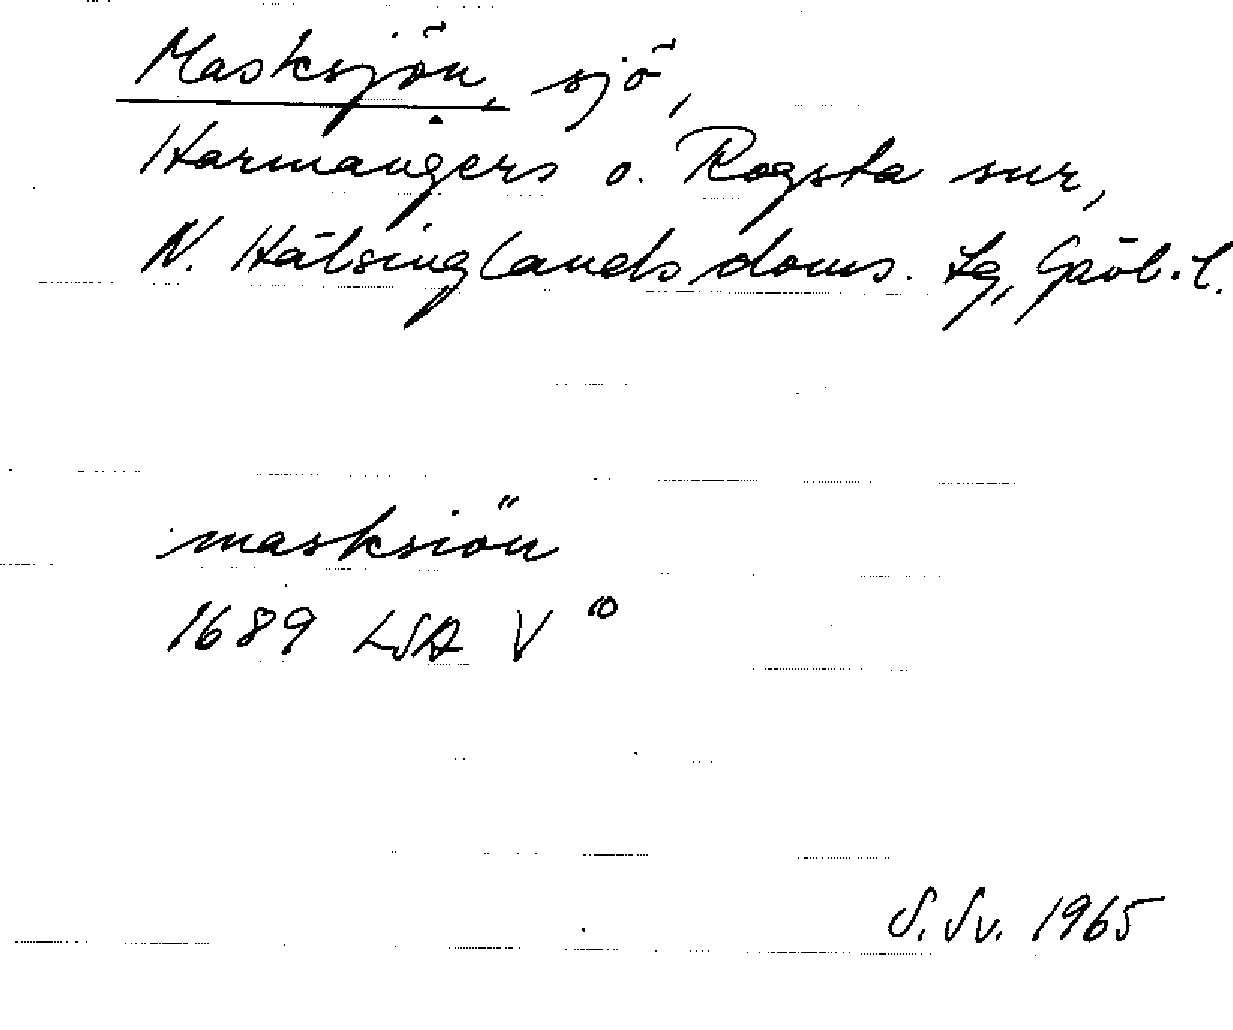 Masksjön, sjö,
Harmångers o. Rogsta snr,
N. Hälsinglands doms. lg, Gävl. l.
masksiön
1689 LSA V 10
S. Sv. 1965